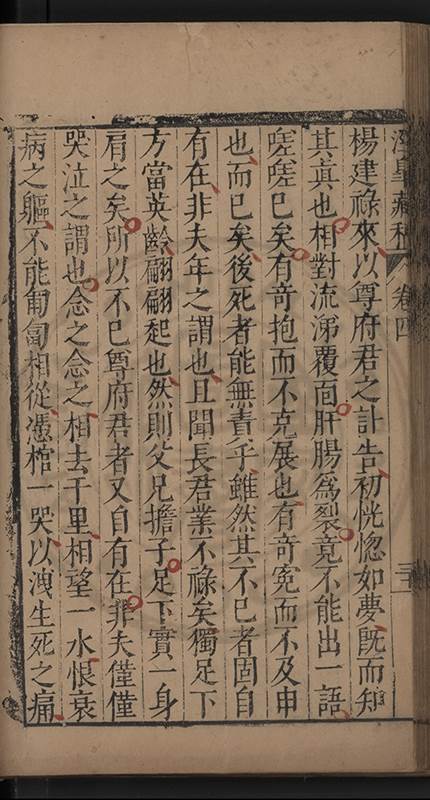 涇皐藏稿 卷四 三十一
楊建祿來以尊府君之訃告初恍惚如夢既而知
其真也相對流涕覆面肝腸爲裂竟不能出一語
嗟嗟已矣有奇抱而不克展也有奇寃而不及申
也而已矣後死者能無責乎雖然其不已者固自
有在非夫年之謂也且聞長君業不祿矣獨足下
方當英齡翩翩起也然則父兄擔子足下實一身
肩之矣所以不已尊府君者又自有在非夫僅僅
哭泣之謂也念之念之相去千里相望一水恨衰
病之軀不能匍匐相從憑棺一哭以洩生死之痛